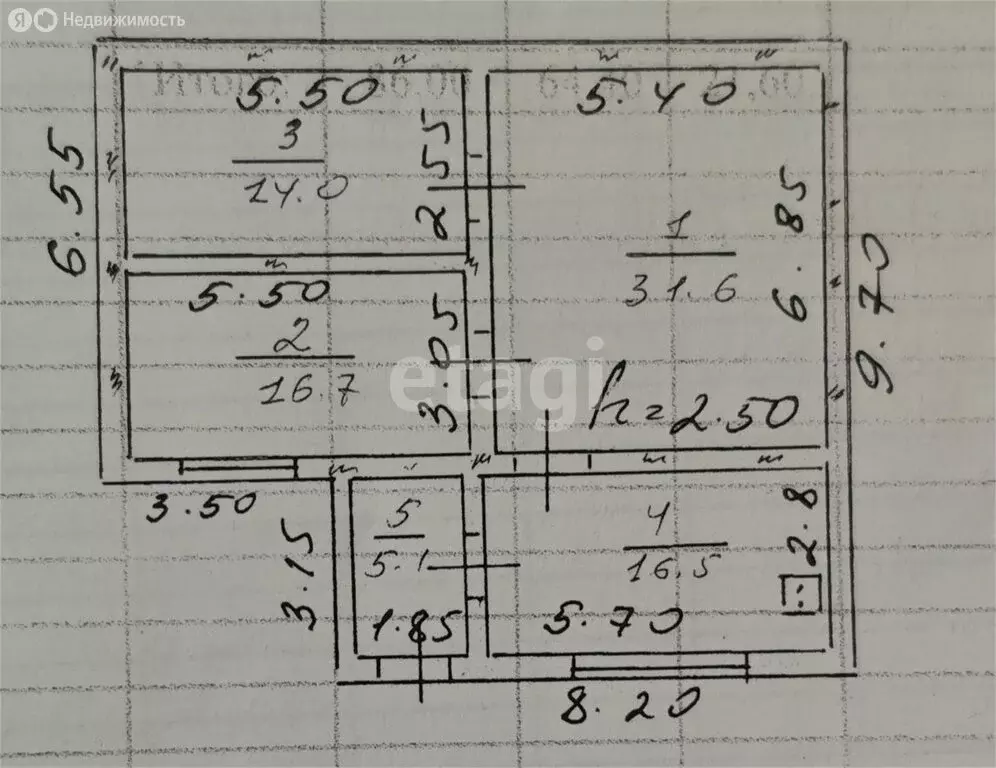 Я Недвижимость
5.50
5.40
3
14.0
2.55
6.55
1
31.6
6.85
9.70
5.50
2
16.7
3.05
etagi
h=2.50
3.50
3.15
5
5.1
1.85
4
16.5
2.8
5.70
8.20